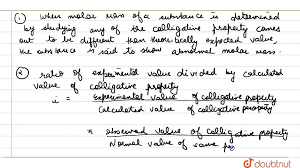 ① When molar mass of a substance is determined
by studying any of the colligative property comes
out to be different than theoretically expected value,
the substance is said to show abnormal molar mass.
② ratio of experimental value divided by calculated
value of colligative property
i = Experimental value of colligative property
Calculated value of colligative property
= observed value of colligative property
Normal value of same p
doubtnut